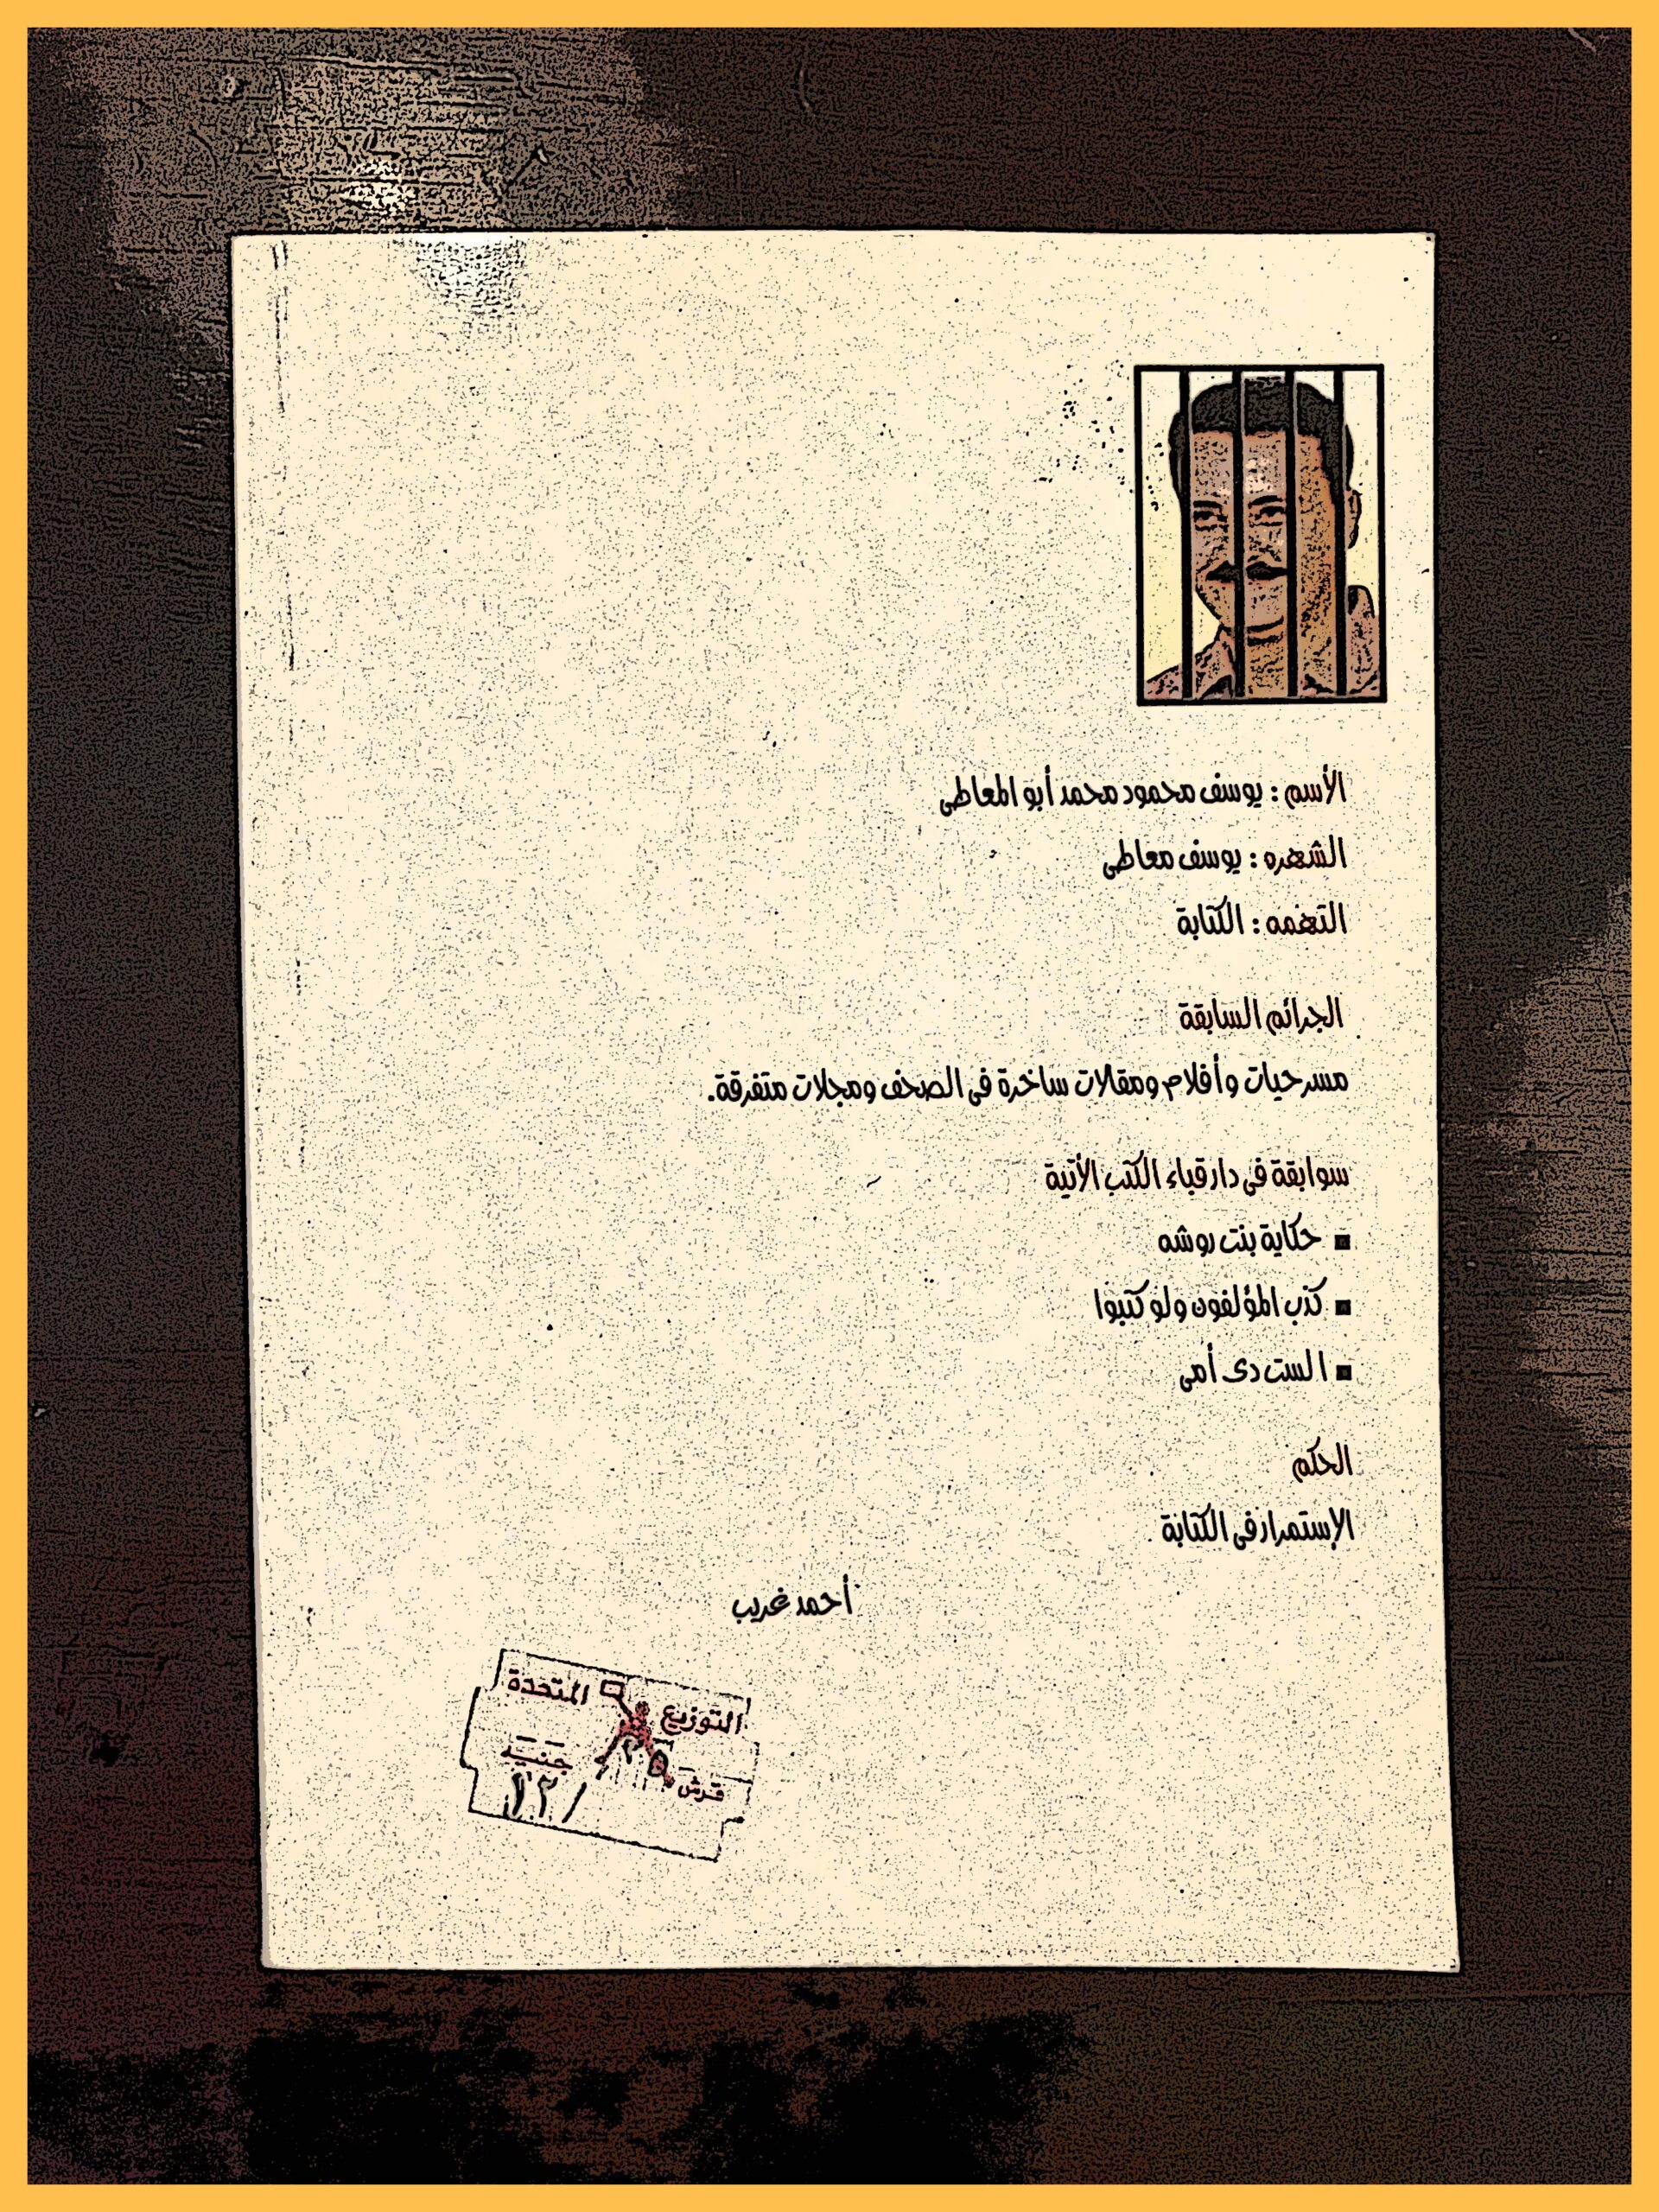 الأسم : يوسف محمود محمد أبو المعاطى
الشهره : يوسف معاطى
التهمه : الكتابة
الجرائم السابقة
مسرحيات وأفلام ومقالات ساخرة فى الصحف ومجلات متفرقة.
سوابقة فى دار قباء الكتب الأتية
▪ حكاية بنت روشه
▪ كذب المؤلفون ولو كتبوا
▪ الست دى أمى
الحكم
الإستمرار فى الكتابة
أحمد غريب
المتحدة
التوزيع
جنيه
قرش
١٢/